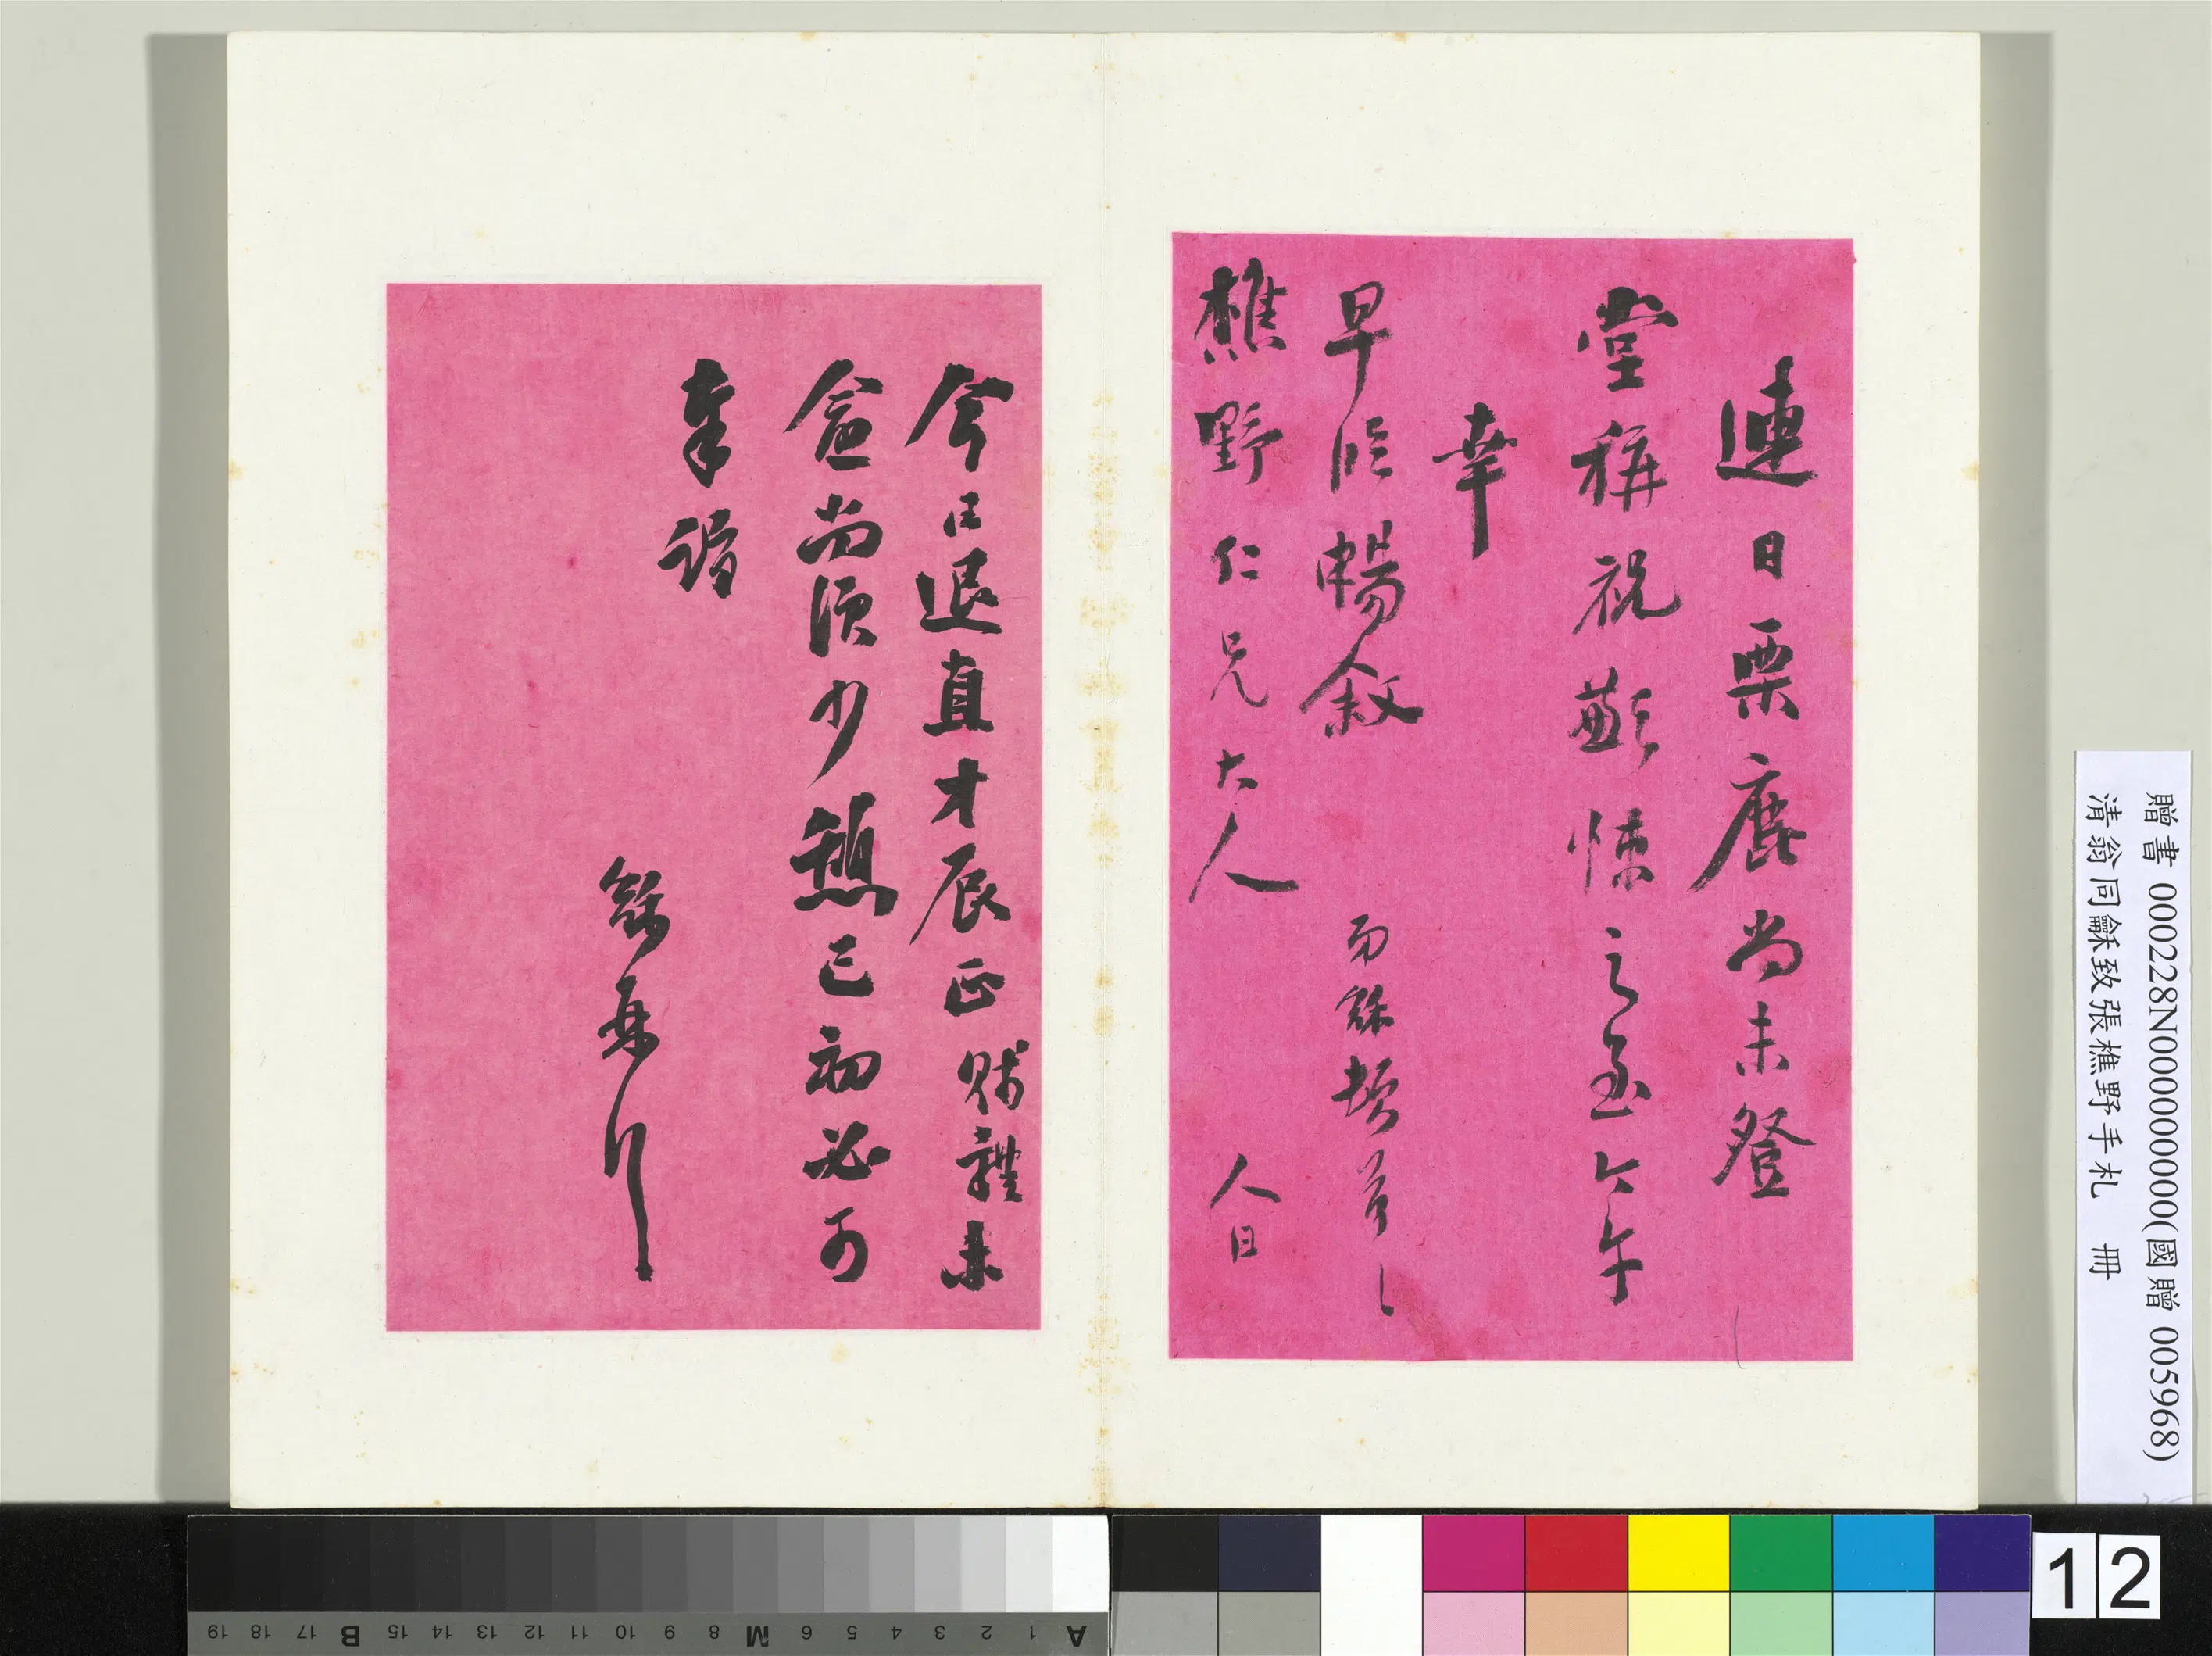 連日栗鹿尚未登
堂稱祝歉悚之至今午
幸
早臨暢敘
弟龢頓首
樵野仁兄大人
人日
今日退直才辰正賜禮未
愈尚須少憩巳初必可
奉詣
龢再行
贈書 000228N000000000(國贈 005968)
清翁同龢致張樵野手札 冊
12
A 1 2 3 4 5 6 M 8 9 10 11 12 13 14 15 B 17 18 19